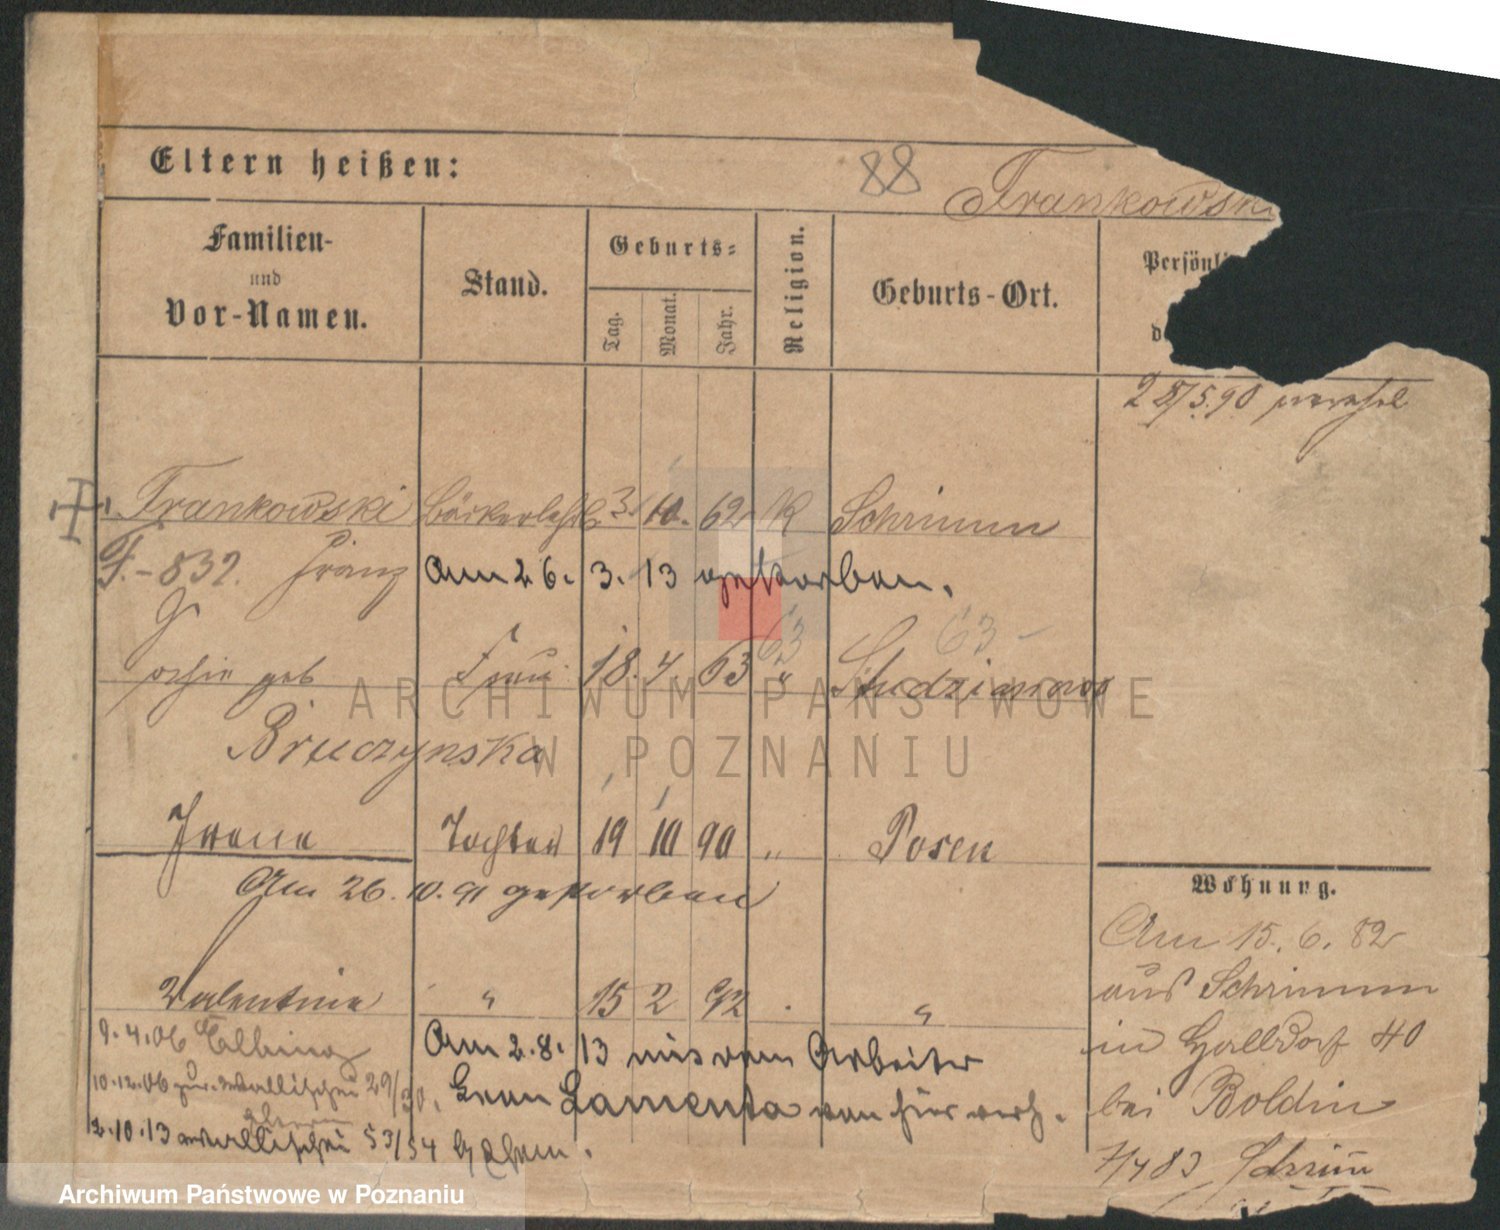 Eltern heißen:
88
Frankowski
Familien-
und
Vor-Namen.
Stand.
Geburts-
Tag.
Monat.
Jahr.
Religion.
Geburts-Ort.
Persönli
d
28/5.90
Frankowski
3. 10. 62 K Schrimm
F.-832. Franz
Am 26. 3. 13 gestorben.
63
63 -
geb Frau 18. 4 63 " Studzianna
Bruczynska
Irene Tochter 19 10 90 " Posen
Am 26. 10. 91 gestorben
Valentine " 15 2 92 "
9.4.06 Elbing
Am 2.8.13 mit dem Arbeiter
10.12.06 zur. Wallischei 29/30.
Lamenta von hier verh.
2.10.13 Wallischei 53/54
Wohnung.
Am 15. 6. 82
aus Schrimm
in Halldorf 40
bei Boldin
7/4 83 Schrimm
ARCHIWUM PAŃSTWOWE
W POZNANIU
Archiwum Państwowe w Poznaniu